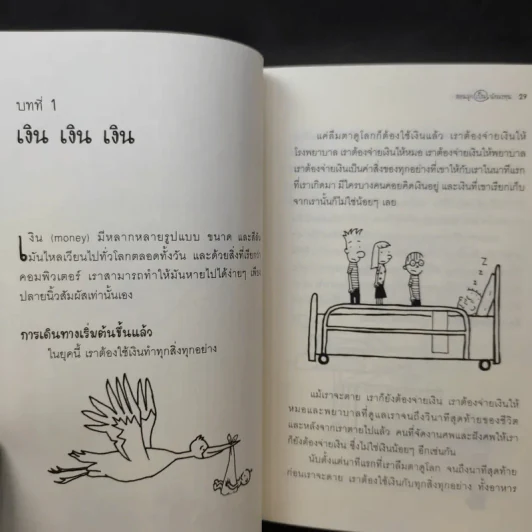 บทที่ 1
เงิน เงิน เงิน
เงิน (money) มีหลากหลายรูปแบบ ขนาด และสีสัน
มันไหลเวียนไปทั่วโลกตลอดทั้งวัน และด้วยสิ่งที่เรียกว่า
คอมพิวเตอร์ เราสามารถทำให้มันหายไปได้ง่ายๆ เพียง
ปลายนิ้วสัมผัสเท่านั้นเอง
การเดินทางเริ่มต้นขึ้นแล้ว
ในยุคนี้ เราต้องใช้เงินทำทุกสิ่งทุกอย่าง
29
แค่ลืมตาดูโลกก็ต้องใช้เงินแล้ว เราต้องจ่ายเงินให้
โรงพยาบาล เราต้องจ่ายเงินให้หมอ เราต้องจ่ายเงินให้พยาบาล
เราต้องจ่ายเงินเป็นค่าสิ่งของทุกอย่างที่เขาให้กับเราในนาทีแรก
ที่เราเกิดมา มีใครบางคนคอยคิดเงินอยู่ และเงินที่เขาเรียกเก็บ
จากเรานั้นก็ไม่ใช่น้อยๆ เลย
แม้เราจะตาย เราก็ยังต้องจ่ายเงิน เราต้องจ่ายเงินให้
หมอและพยาบาลที่ดูแลเราจนถึงวินาทีสุดท้ายของชีวิต
และหลังจากเราตายไปแล้ว คนที่จัดงานศพและฝังศพให้เรา
ก็ยังต้องจ่ายเงิน ซึ่งไม่ใช่เงินน้อยๆ อีกเช่นกัน
นับตั้งแต่นาทีแรกที่เราลืมตาดูโลก จนถึงนาทีสุดท้าย
ก่อนเราจะตาย เราต้องใช้เงินกับทุกสิ่งทุกอย่าง ทั้งอาหาร